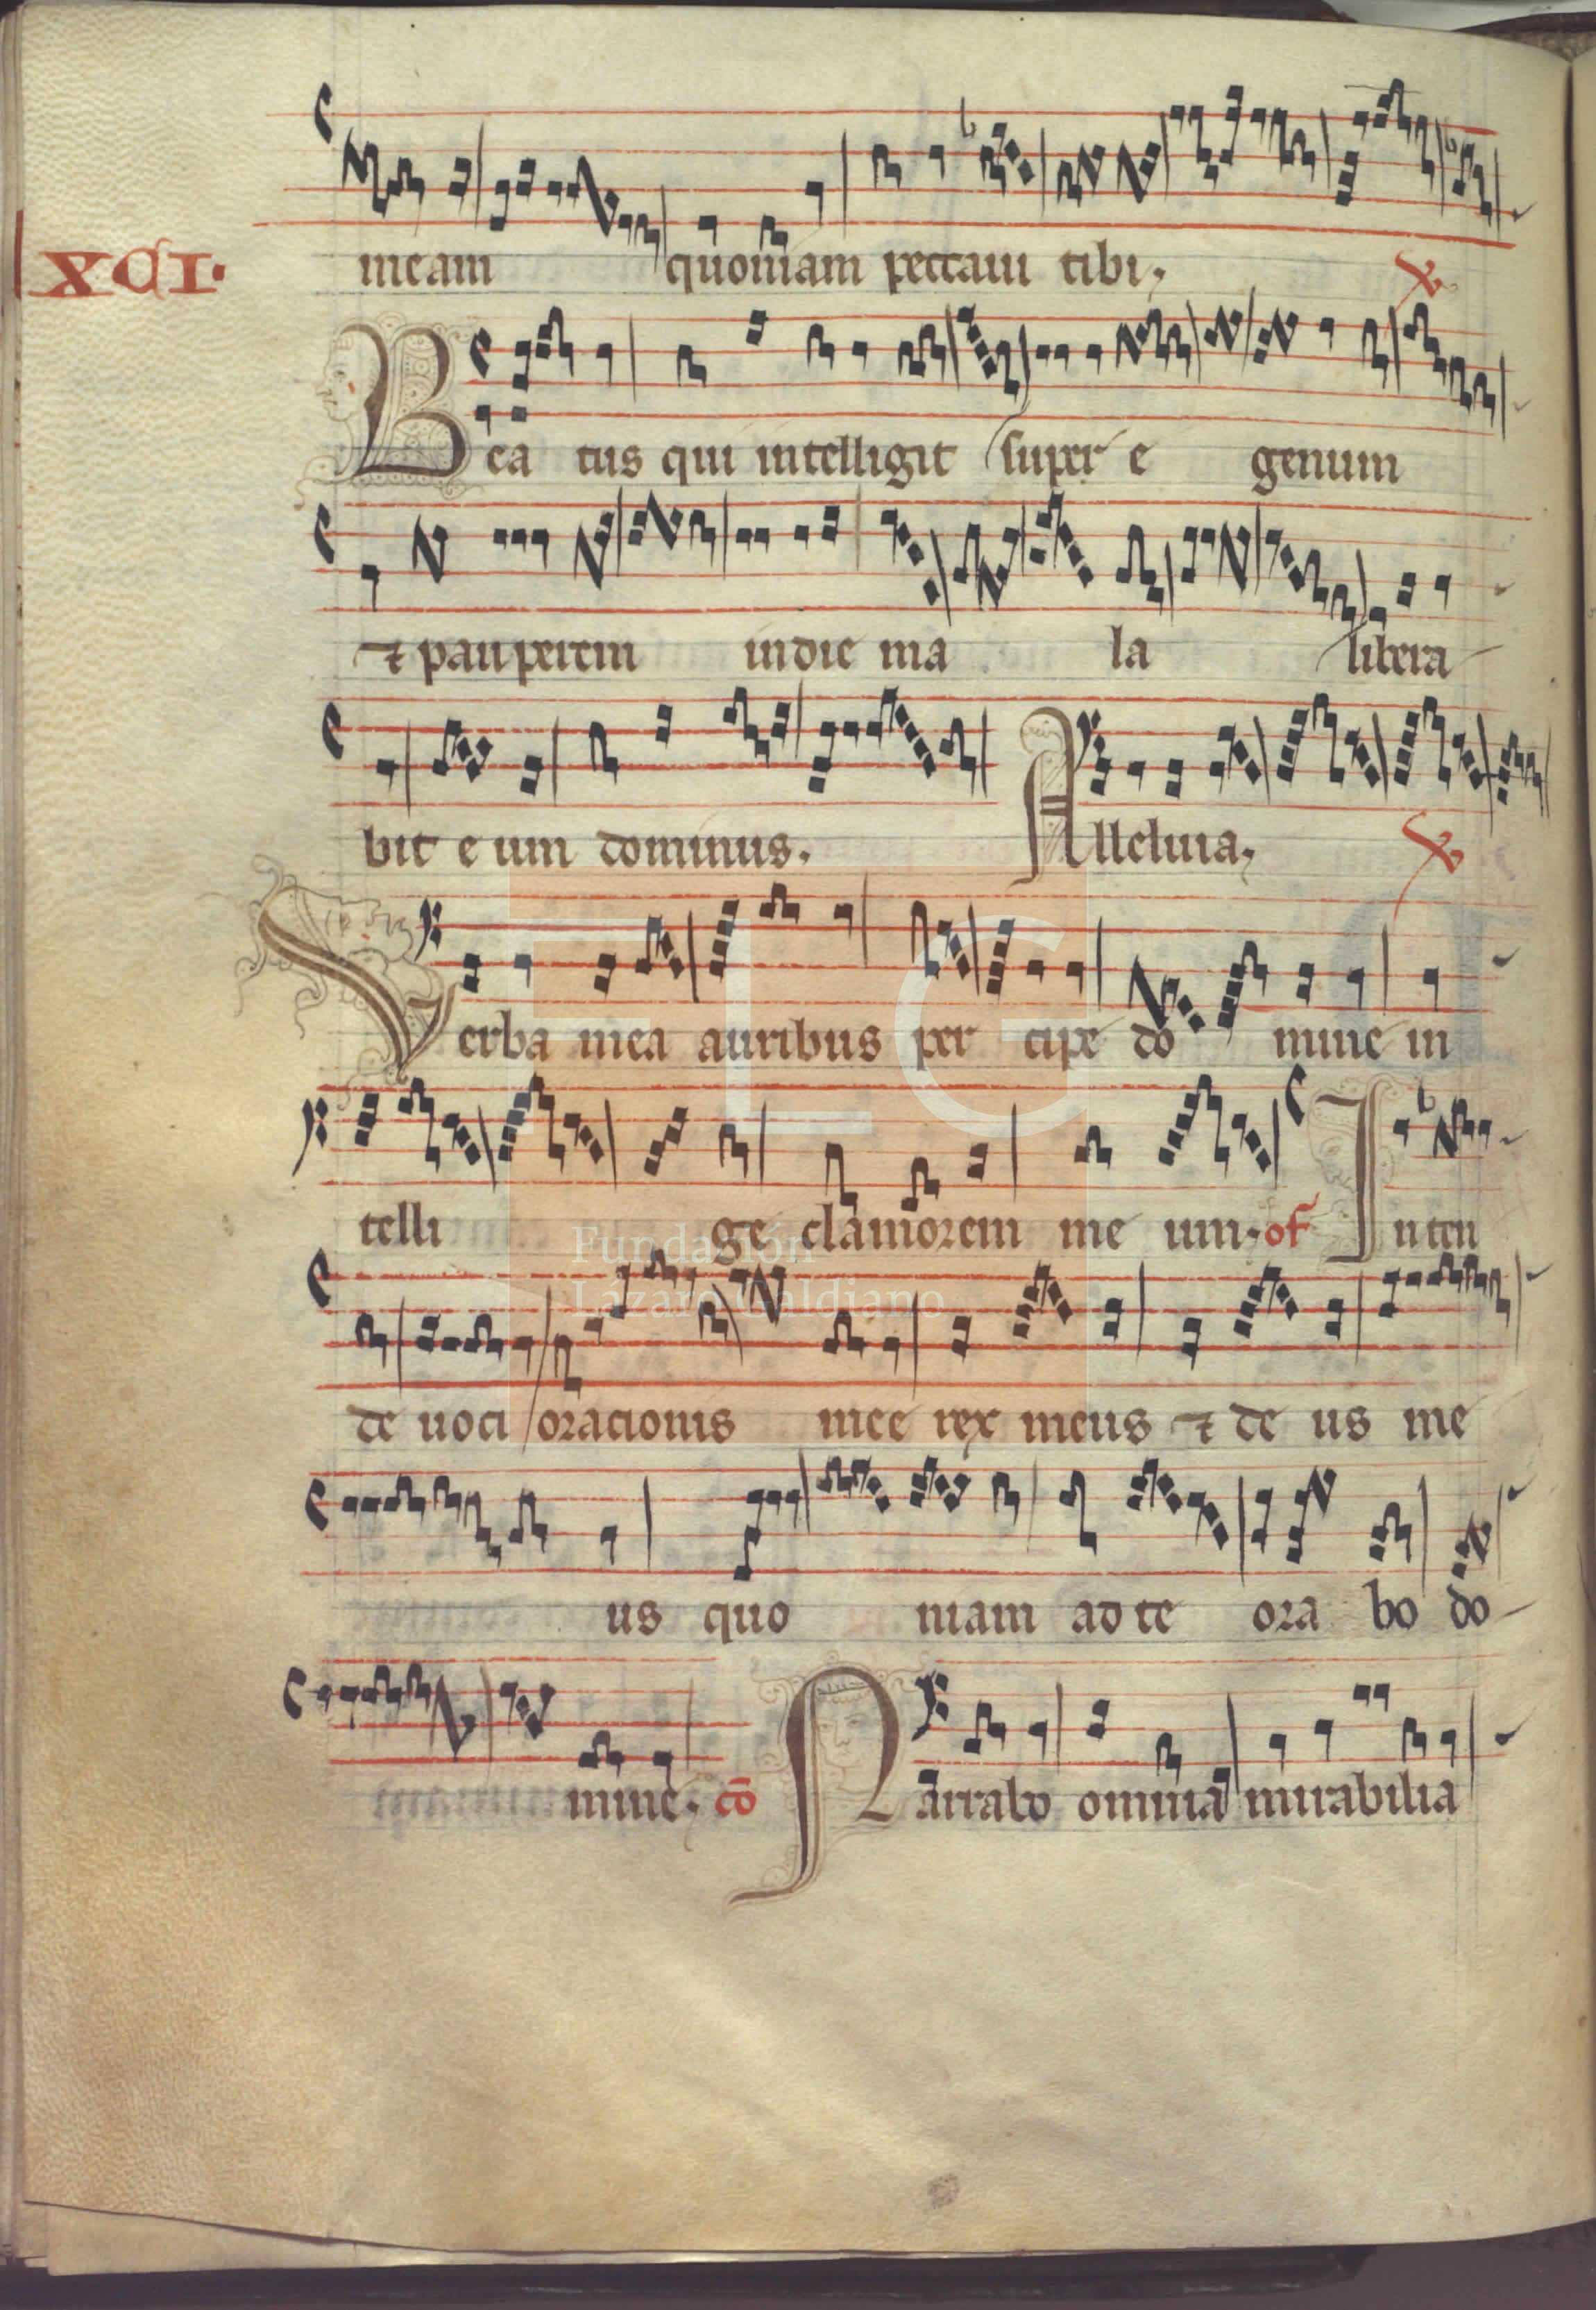 XCI.
meam quoniam peccaui tibi.
Bea tus qui intelligit super e genum
⁊ pauperem in die ma la libera
bit e um dominus. Alleluia.
Verba mea auribus per cipe do mine in
telli ge clamorem me um. of Inten
de uoci oracionis mee rex meus ⁊ de us me
us quo niam ad te ora bo do
mine. cō Narrabo omnia mirabilia
FLG
Fundación
Lázaro Galdiano